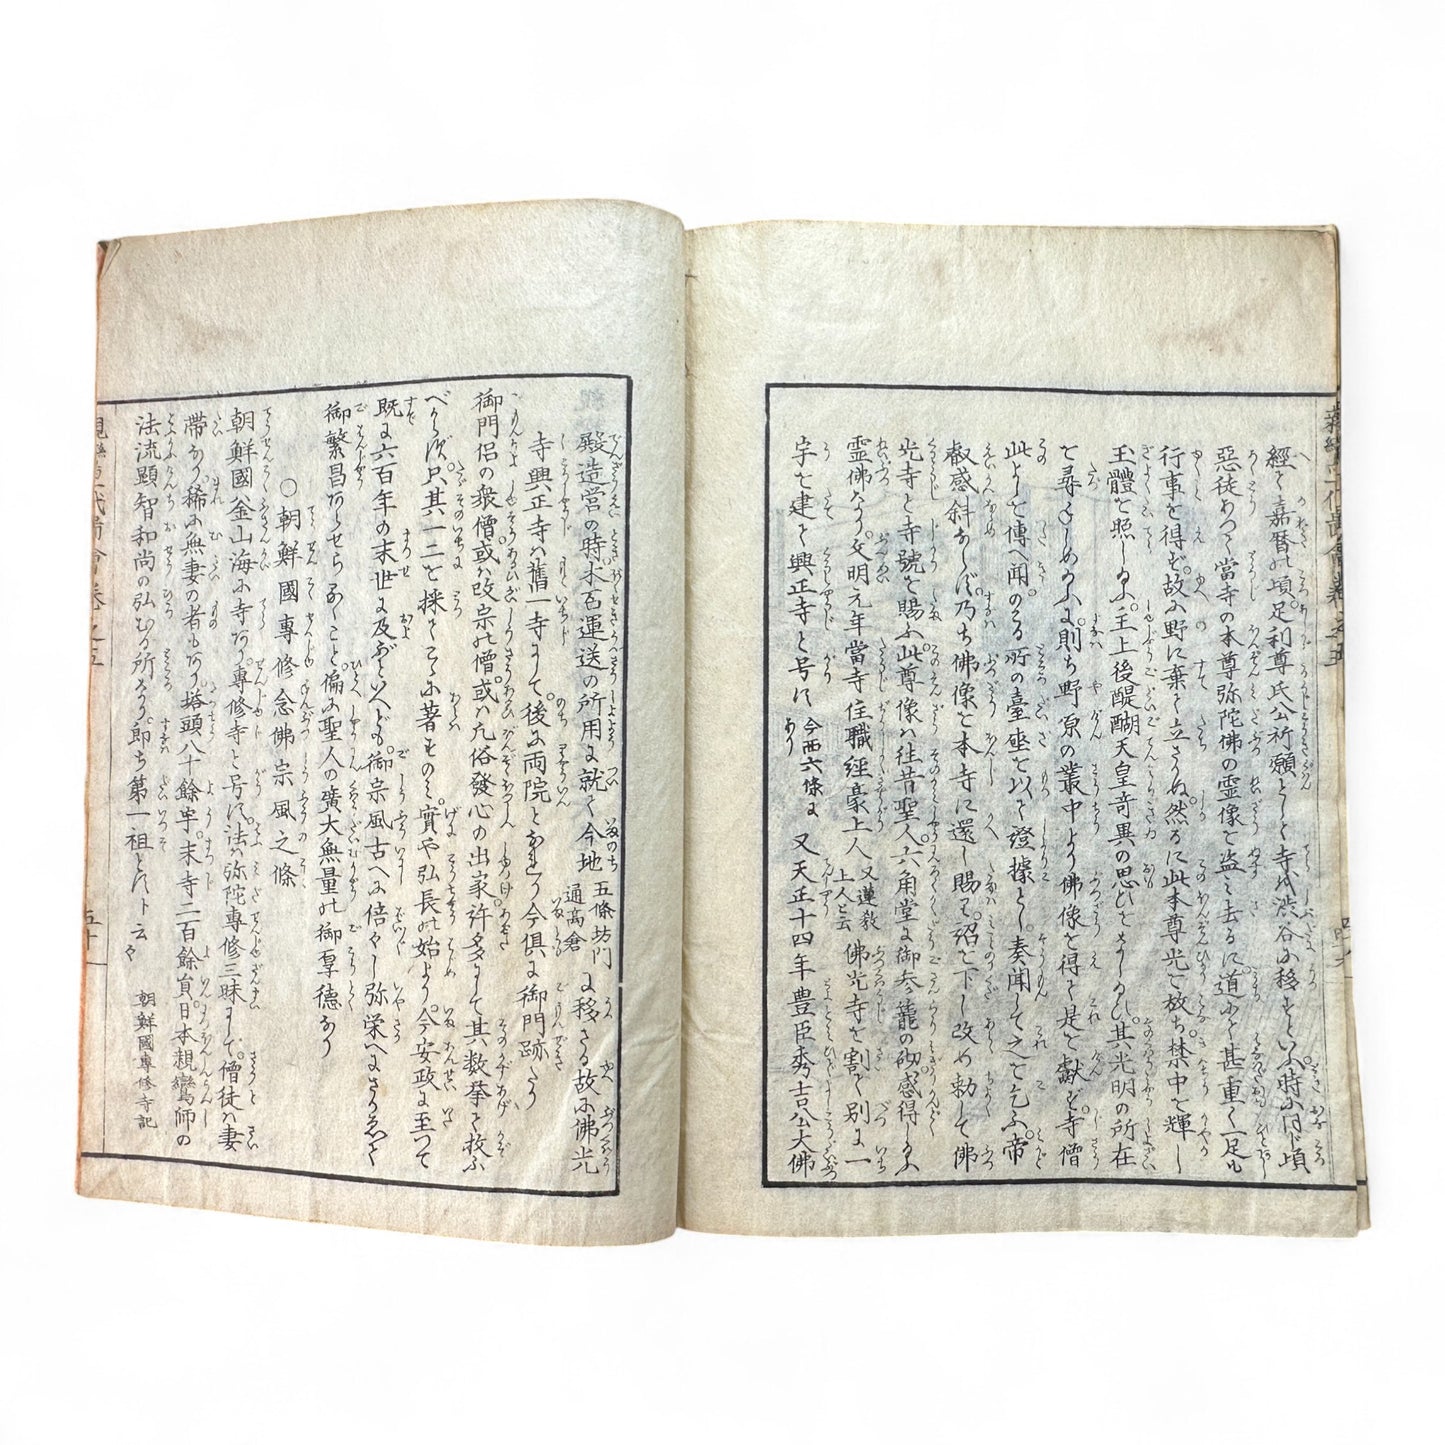 經て嘉暦の頃。足利尊氏公祈願として寺を渋谷に移すといふ。時に何頃
惡徒あつて當寺の本尊弥陀佛の霊像を盗み去るに。道にて甚重く一足も
行事を得ず。故に野に棄て立さりぬ。然るに此本尊光を放ち。禁中を輝し
玉體を照し給ふ。主上後醍醐天皇奇異の思ひをなし。其光明の所在
を尋ねしめ給ふに。則ち野原の叢中より佛像を得て是を獻ず。寺僧
此よしを傳へ聞。のこる所の臺座を以て證據とし。奏聞して之を乞ふ。帝
叡感斜ならず。乃ち佛像を本寺に還し賜ひ。詔を下し改め勅して佛
光寺と寺號を賜ふ。此尊像は往昔聖人。六角堂に御参籠の砌。感得し給ふ
霊佛なり。文明元年當寺住職經豪上人 又蓮敎上人と云 佛光寺を割て別に一
宇を建て興正寺と号に 今西六條にあり 又天正十四年豊臣秀吉公大佛
殿造営の時。木石運送の所用に就て今地 五條坊門通高倉 に移さる故に佛光
寺興正寺は舊一寺にして。後に両院となれり。今俱に御門跡たり
御門侶の衆僧。或は改宗の僧。或は凡俗發心の出家。許多にして其数挙て扱ふ
べからず。只其一二を採てこゝに著すものミ。實や弘長の始より。今安政に至つて
既に六百年の末世に及ぶといへども。御宗風古へに倍々し弥栄へにさかゑて
御繁昌ましませらるゝこと。偏に聖人の廣大無量の御羣德なり
○朝鮮國專修念佛宗風之條
朝鮮國釜山海に寺あり。專修寺と号に。法は弥陀專修三昧にして。僧徒は妻
帶なり。稀に無妻の者もあり。塔頭八十餘宇。末寺二百餘負。日本親鸞師の
法流顯智和尚の弘むる所なり。即ち第一祖とすト云々 朝鮮國專修寺記
五十一